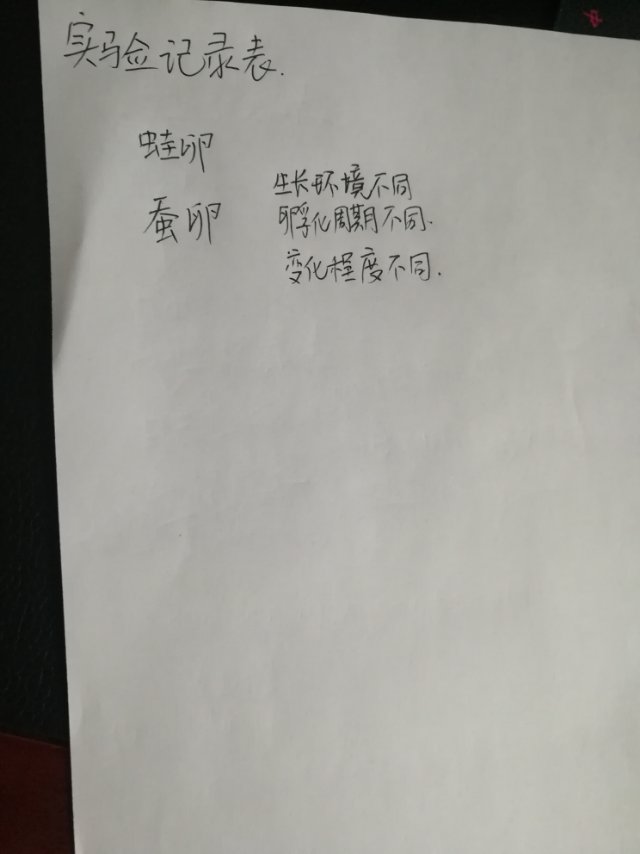 实验记录表.
蛙卵
生长环境不同
蚕卵
孵化周期不同.
变化程度不同.